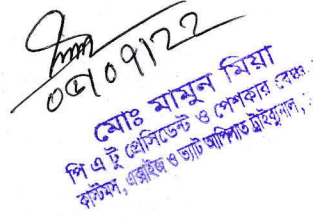 ০৫/০৭/২২
মোঃ মামুন মিয়া
পি এ টু প্রেসিডেন্ট ও পেশকার বেঞ্চ
কাস্টমস, এক্সাইজ ও ভ্যাট আপিলাত ট্রাইব্যুনাল,